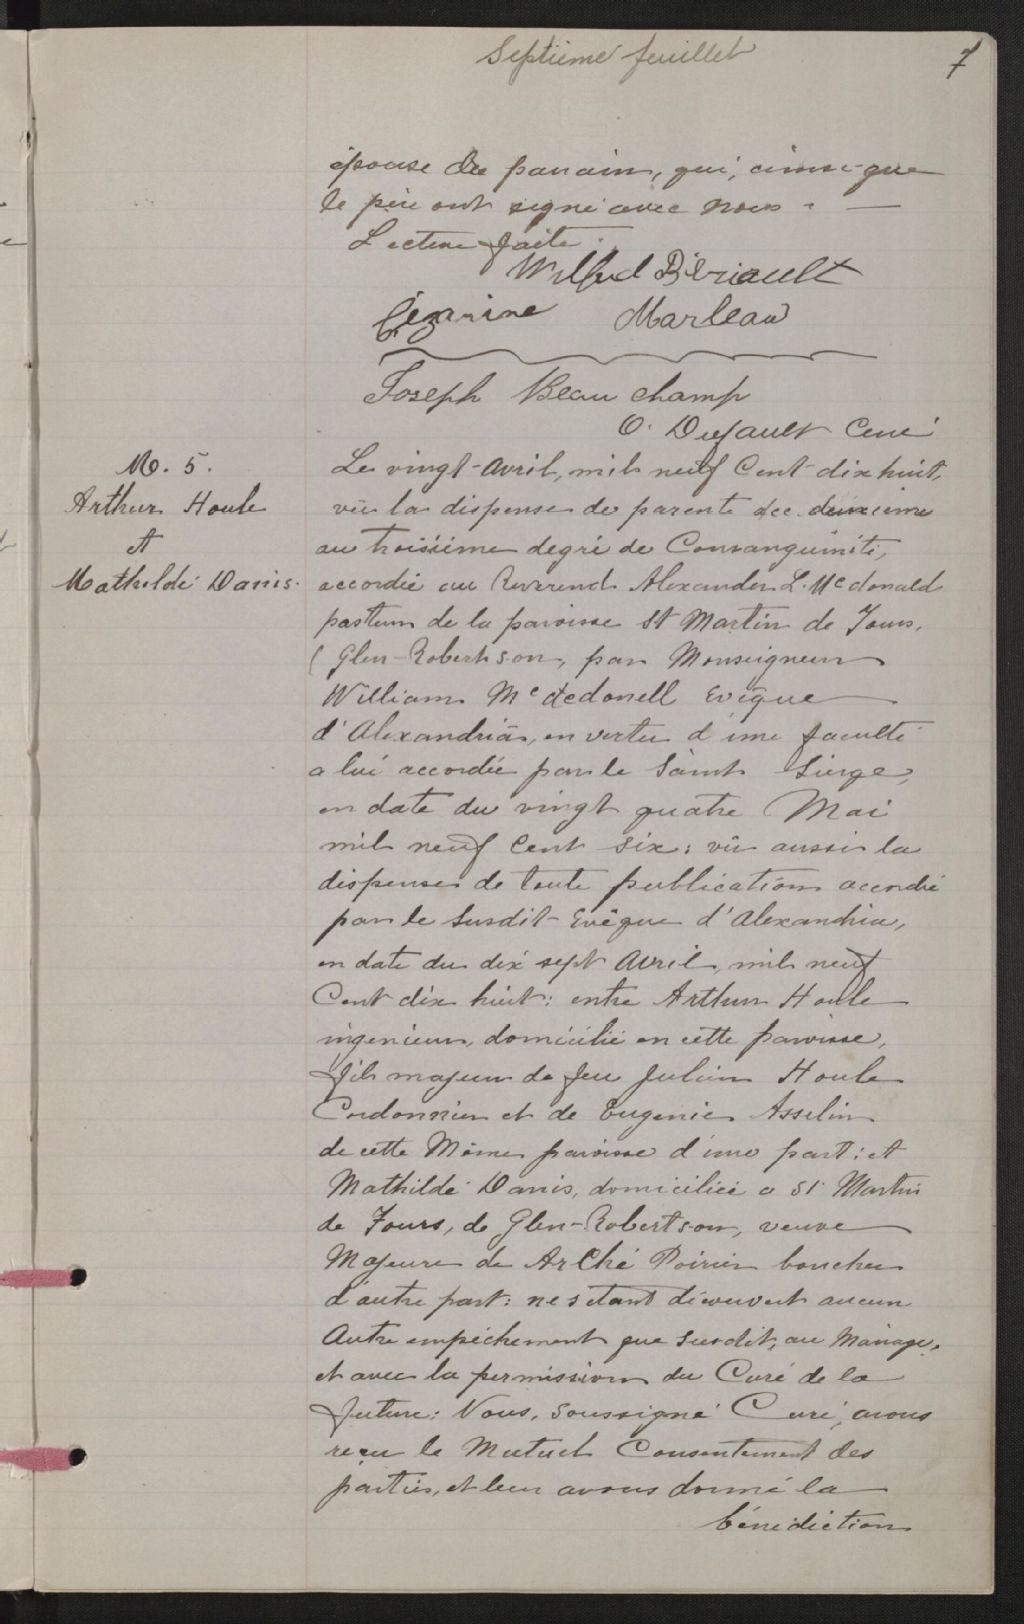 Septième feuillet
7
épouse du parrain, qui, ainsi que
le père ont signé avec nous. —
Lecture faite.
Wilfrid Bibriault
Cézarine Marleau
Joseph Beauchamp
O. Dufault Curé
M. 5.
Arthur Houle
et
Mathilde Danis.
Le vingt-avril, mil neuf cent-dix huit,
vû la dispense de parenté de deuxième
au troisième degré de Consanguinité,
accordée au Reverend Alexander L. Mcdonald
pasteur de la paroisse St Martin de Tours,
(Glen-Robertson, par Monseigneur
William Mc donell Evêque
d'Alexandria, en vertu d'une faculté
a lui accordée par le Saint Siège,
en date du vingt quatre Mai
mil neuf cent six: vû aussi la
dispense de toute publication accordée
par le susdit Evêque d'Alexandria,
en date du dix sept Avril, mil neuf
Cent dix huit: entre Arthur Houle
ingenieur, domicilié en cette paroisse,
fils majeur de feu Julien Houle
Cordonnier et de Eugenie Asselin
de cette Même paroisse d'une part: et
Mathilde Danis, domiciliée a St Martin
de Tours, de Glen-Robertson, veuve
Majeure de Arché Poirier boucher
d'autre part: ne s'étant découvert aucun
Autre empêchement que susdit, au Mariage,
et avec la permission du Curé de la
future: Nous, soussigné Curé, avons
reçu le Mutuel Consentement des
parties, et leur avons donné la
bénédiction